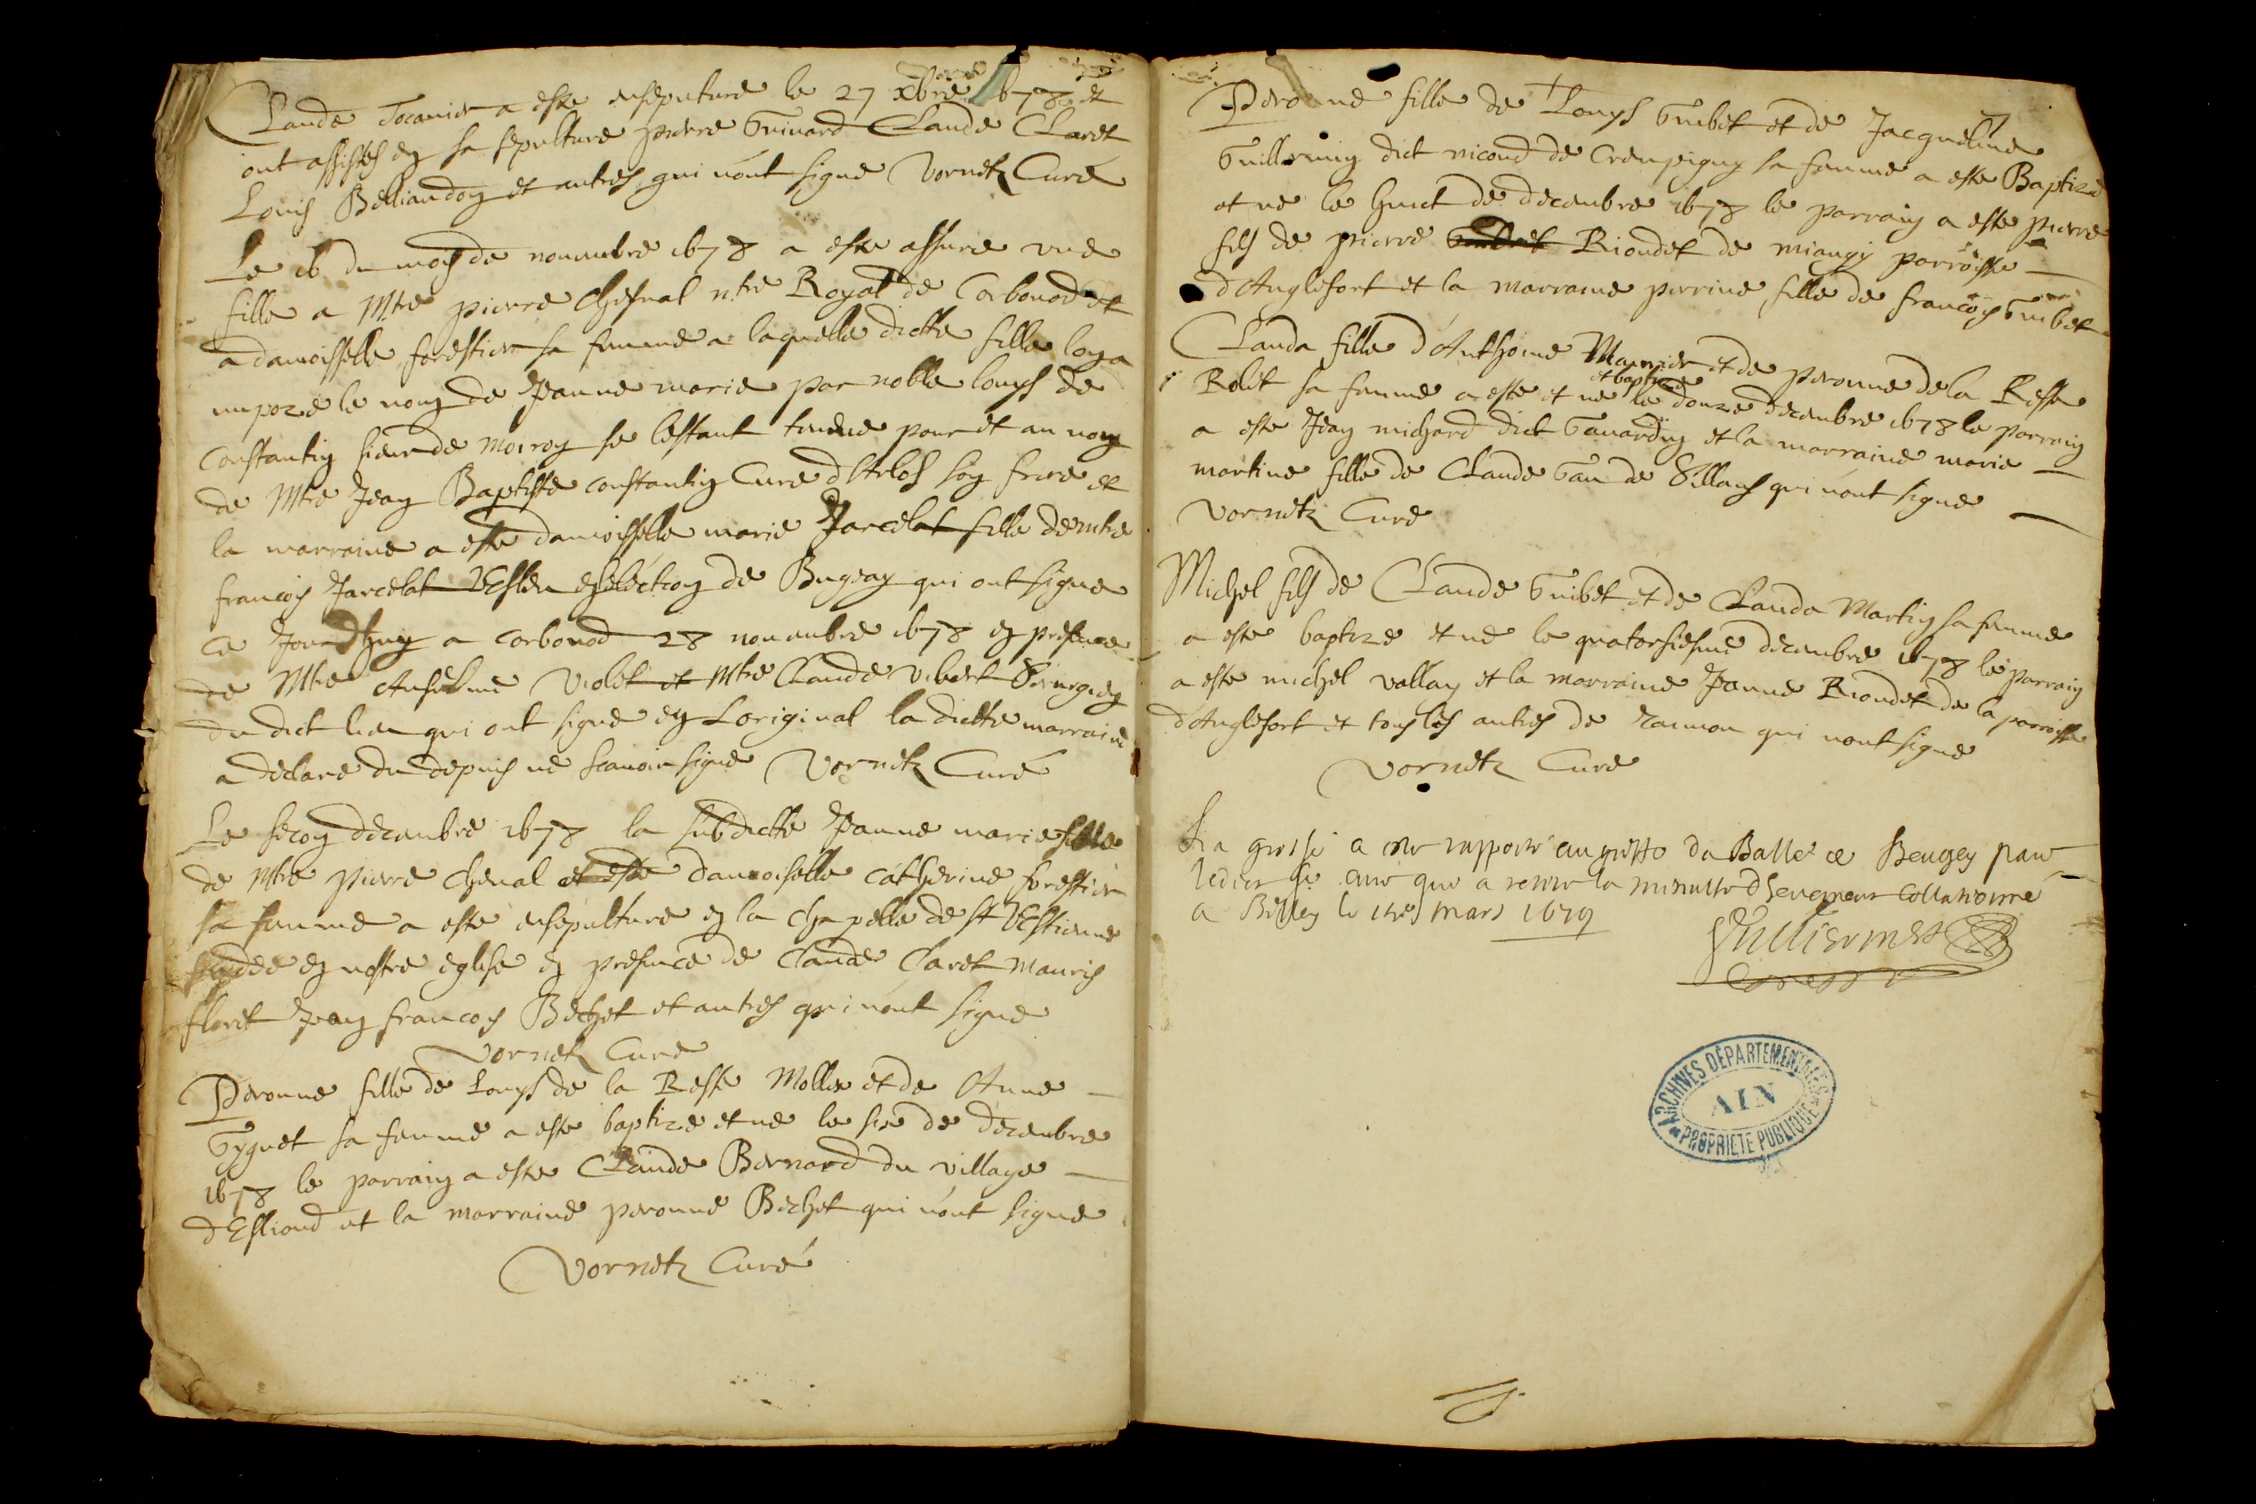 Claude Jocanier a este ensepulture le 27 xbre 1678 et
ont assistes en sa sepulture pierre Guinard Claude Claret
Louis Belliandon et autres qui n'ont signe Vornetz Curé
Le 16 du mois de novembre 1678 a este assure une
fille a Mtre pierre Chesnal ntre Royal de Corbonod et
a damoisselle forestier sa femme a laquelle dicte fille lon a
impoze le nom de Jeanne marie par noble louys de
Constantin sieur de moiron se lestant tenue pour et au nom
de Mtre Jean Baptiste constantin Cure d'Arlos son frere et
la marraine a este damoisselle marie Jarcelat fille de mtre
francois Jarcelat Eslen en election de Bugeay qui ont signe
ce Jourdhuy a corbonod 28 novembre 1678 en presence
de Mtre Anselme Violet et Mtre Claude Vibert
du dict lieu qui ont signe en Loriginal la dicte marraine
a declare du depuis ne scavoir signe Vornetz Curé
Le secon decembre 1678 la subdicte Jeanne marie fille
de Mtre Pierre Chenal et este damoiselle catherine forestier
sa femme a este ensepulture en la chapelle de st Estienne
en nostre eglise en presence de Claude Claret Mauris
floret Jean francois Bechet et autres qui n'ont signe
Vornetz Cure
Peronne fille de Louys de la Resse Mollie et de Anne
Gyguet sa femme a este baptize et ne le six de decembre
1678 le parrain a este Claude Bernard du village
d'Estiond et la marraine peronne Bechet qui n'ont signe
Vornetz Curé
Peronne fille de Louys Guibet et de Jacqueline
Guillermin dict nicond de Crempigny sa femme a este Baptize
et ne le huict de decembre 1678 le parrain a este pierre
fils de pierre Riondet de miangy parroisse
d'Anglefort et la marraine perrine fille de francois Guibet
Clauda fille d'Anthoine Mannier et de peronne de la Resse
et baptize
Rolet sa femme a este et ne le douze decembre 1678 le parrain
a este Jean michard dict Gavardin et la marraine marie
martine fille de Claude Gau de Sillans qui n'ont signe
Vornetz Cure
Michel fils de Claude Guibet et de Clauda Martin sa femme
a este baptize et ne le quatorsiesme decembre 1678 le parrain
a este michel vallay et la marraine Jeanne Riondet de la parroisse
d'Anglefort et tous les autres de qui nont signe
Vornetz Cure
La grosse a este rapporte au greffe du Balle ce Beugey par
ledict sr cure qui a retire la minutte collationne
a Belley le mars 1679
ARCHIVES DÉPARTEMENTALES
AIN
PROPRIÉTÉ PUBLIQUE